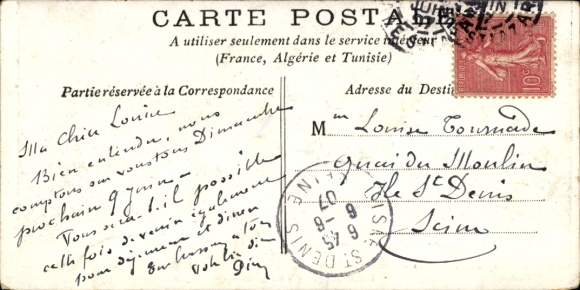 CARTE POSTALE
A utiliser seulement dans le service intérieur
(France, Algérie et Tunisie)
Partie réservée à la Correspondance
Adresse du Desti
Ma chère Louise
Bien entendu, nous
comptons sur vous tous Dimanche
prochain 9 juin.
Vous sera-t-il possible
cette fois de venir également
pour déjeuner et dîner
M
Louise Tournade
Quai du Moulin
Ile St Denis
Seine
10c
ISLE ST DENIS
6 45
8 -6
07